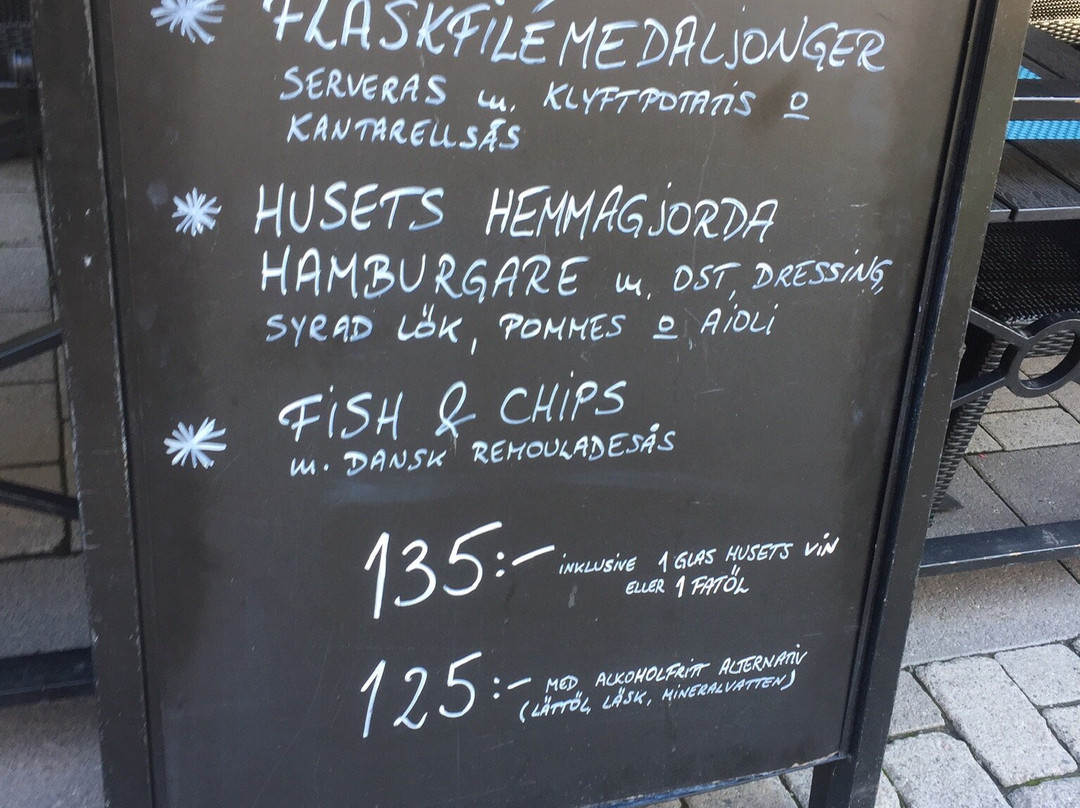 FLÄSKFILÉMEDALJONGER
SERVERAS m. KLYFTPOTATIS o
KANTARELLSÅS
HUSETS HEMMAGJORDA
HAMBURGARE m. OST, DRESSING,
SYRAD LÖK, POMMES o AiOLi
FiSH & CHiPS
m. DANSK REMOULADESÅS
135:- iNKLUSiVE 1 GLAS HUSETS ViN
ELLER 1 FATÖL
125:- MED ALKOHOLFRiTT ALTERNATiV
(LÄTTÖL, LÄSK, MiNERALVATTEN)